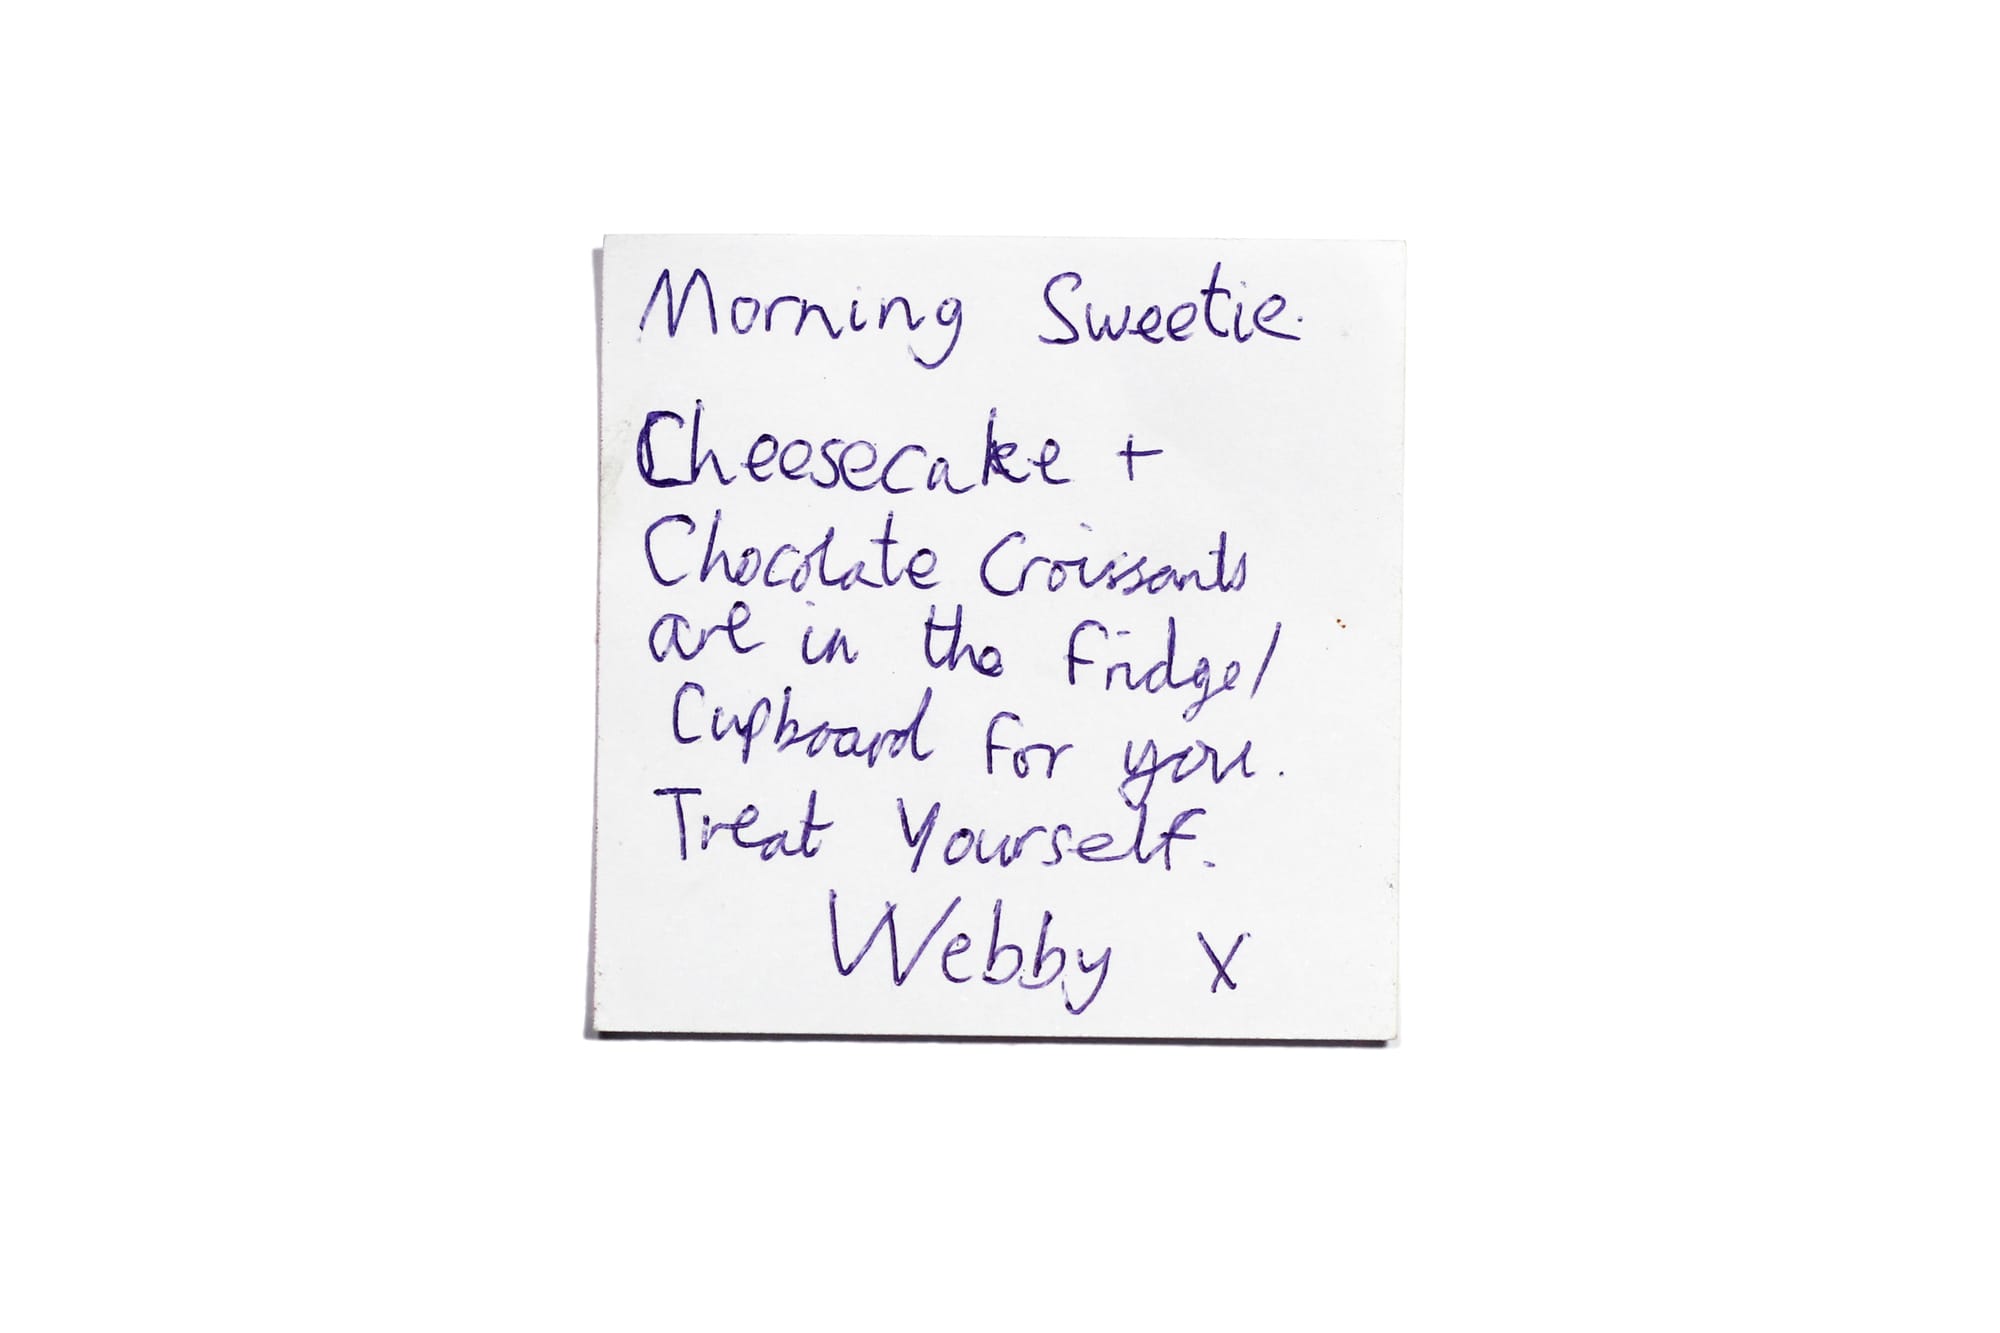 Morning Sweetie.
Cheesecake +
Chocolate Croissants
are in the Fridge/
Cupboard For you.
Treat Yourself.
Webby X